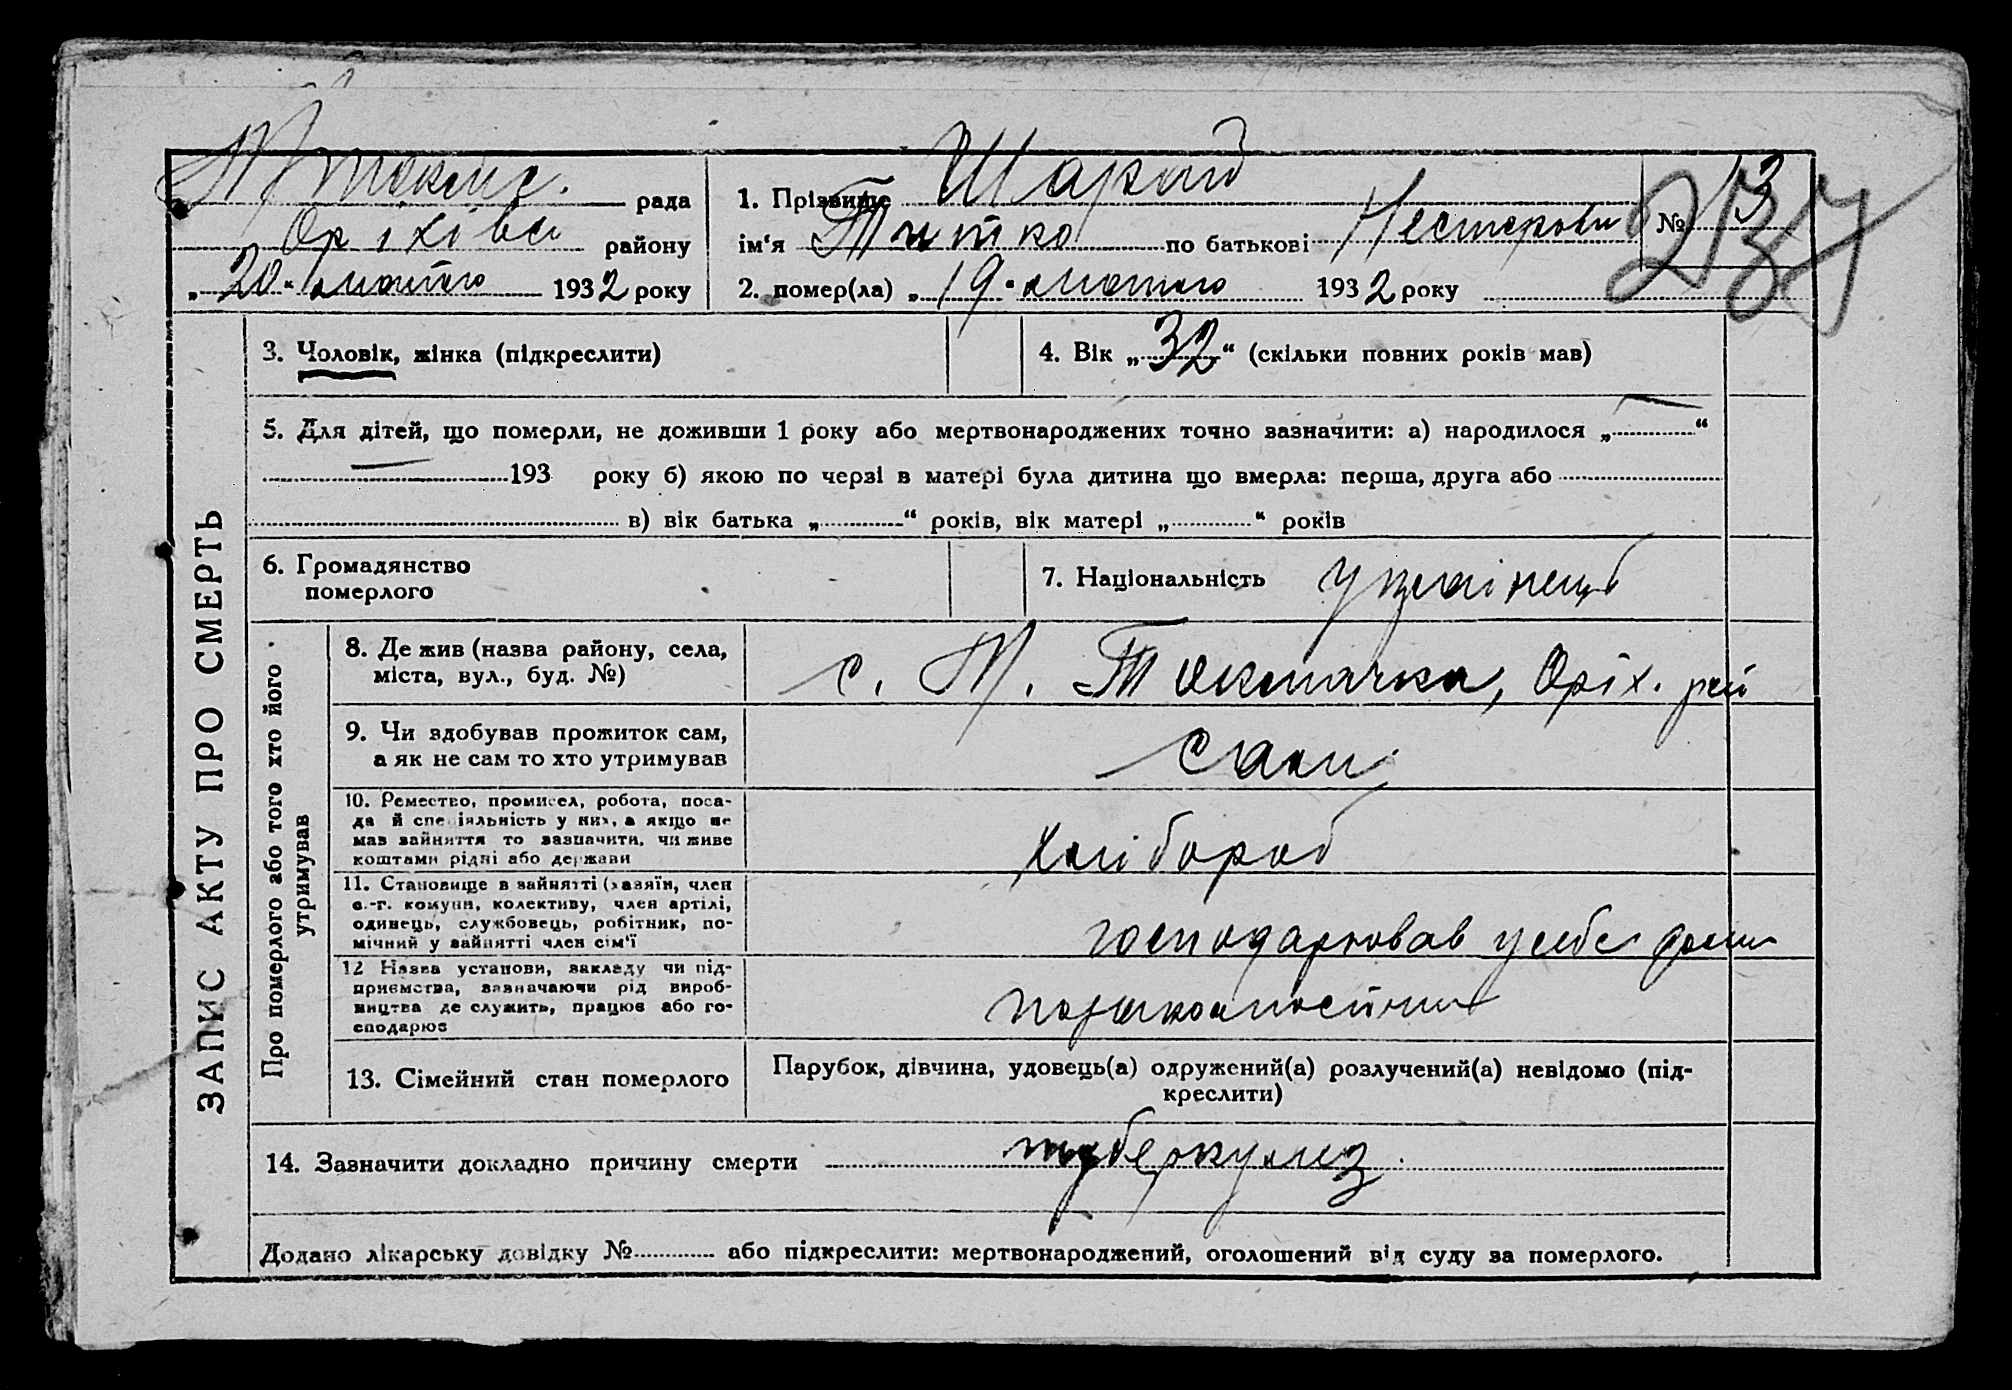 М. Токмач. рада
Оріхівсь району
„20“ лютого 1932 року
1. Прізвище Шарай
ім'я Титко по батькові Нестерович
2. помер(ла) „19“ лютого 1932 року
№ 13
237
ЗАПИС АКТУ ПРО СМЕРТЬ
3. Чоловік, жінка (підкреслити)
4. Вік „32“ (скільки повних років мав)
5. Для дітей, що померли, не доживши 1 року або мертвонароджених точно зазначити: а) народилося „ “
193 року б) якою по черзі в матері була дитина що вмерла: перша, друга або
в) вік батька „ “ років, вік матері „ “ років
6. Громадянство
померлого
7. Національність українець
Про померлого або того хто його
утримував
8. Де жив (назва району, села,
міста, вул., буд. №)
с. М. Токмачка, Оріх. рай
9. Чи здобував прожиток сам,
а як не сам то хто утримував
сам
10. Ремество, промисел, робота, поса-
да й спеціяльність у них, а якщо не
мав зайняття то зазначити, чи живе
коштами рідні або держави
хлібороб
11. Становище в зайнятті (хазяїн, член
с.-г. комуни, колективу, член артілі,
одинець, службовець, робітник, по-
мічний у зайнятті член сім'ї
господарював у себе дома
12 Назва установи, закладу чи під-
приємства, зазначаючи рід вироб-
ництва де служить, працює або го-
сподарює
13. Сімейний стан померлого
Парубок, дівчина, удовець(а) одружений(а) розлучений(а) невідомо (під-
креслити)
14. Зазначити докладно причину смерти туберкульоз
Додано лікарську довідку № або підкреслити: мертвонароджений, оголошений від суду за померлого.